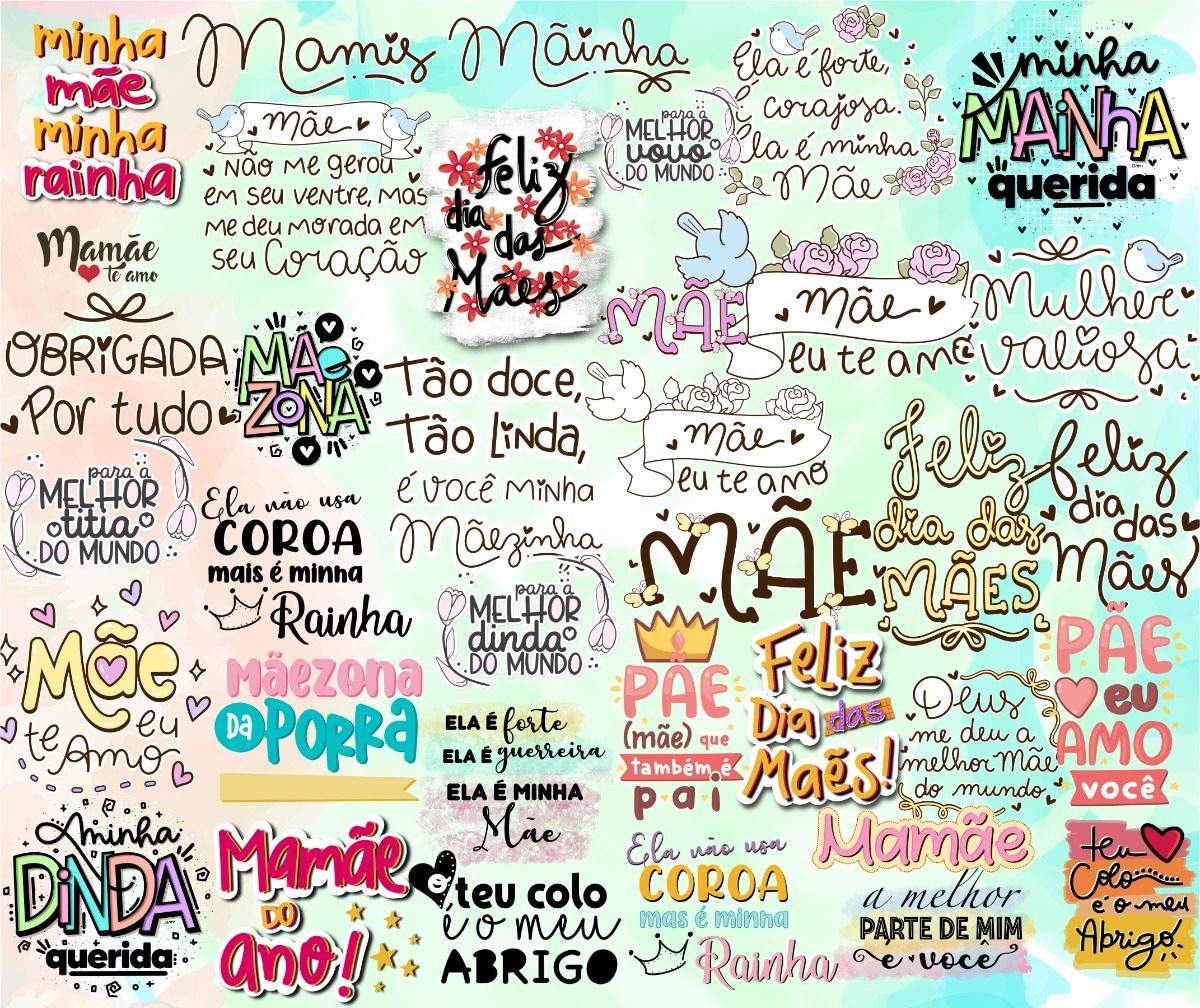 minha
mãe
minha
rainha
Mamis
Mãinha
Ela é forte,
é corajosa.
Ela é minha
Mãe
minha
MAiNhA
querida
Mãe
NÃO me gerou
em seu ventre, mas
me deu morada em
seu Coração
feliz
dia
das
Mães
para a
MELHOR
vovo
DO MUNDO
Mamãe
te amo
MÃE
Mãe
eu te amo
Mulher
valiosa
OBRIGADA
Por tudo
MÃe
ZONA
Tão doce,
Tão Linda,
é você minha
Mãezinha
Mãe
eu te amo
Feliz
dia das
MÃES
feliz
dia
das
Mães
para a
MELHOR
titia
DO MUNDO
Ela não usa
COROA
mais é minha
Rainha
para a
MELHOR
dinda
DO MUNDO
MÃE
Mãe
eu
te Amo
Mãezona
DA PORRA
ELA É forte
ELA É guerreira
ELA É MINHA
Mãe
PÃE
(mãe) que
também é
pai
Feliz
Dia das
Maẽs!
Deus
me deu a
melhor Mãe
do mundo
PÃE
eu
AMO
você
A minha
DiNDA
querida
Mamãe
DO
ano!
teu colo
é o meu
ABRIGO
Ela não usa
COROA
mas é minha
Rainha
Mamãe
a melhor
PARTE DE MIM
é você
teu
Colo
é o meu
Abrigo.